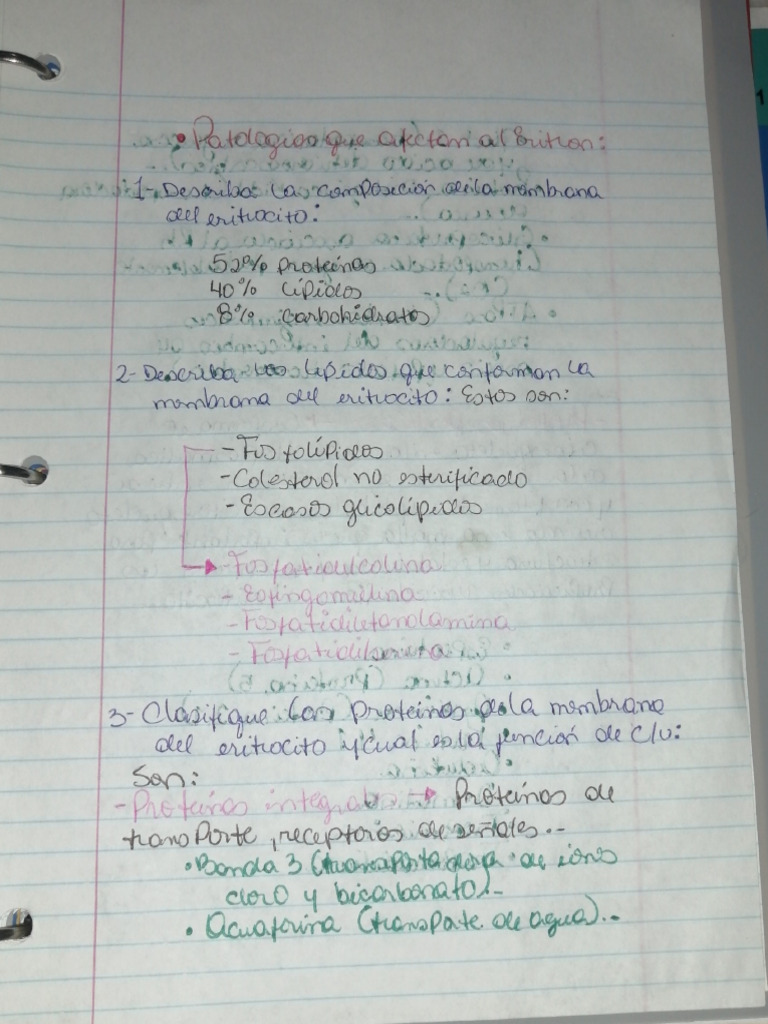 • Patologias que afectan al Eritron:
1- Describa la composición de la membrana
del eritrocito:
52% proteínas
40% Lípidos
8% carbohidratos
2- Describa los lípidos que conforman la
membrana del eritrocito: Estos son:
- Fosfolípidos
- Colesterol no esterificado
- Escasos glicolípidos
- Fosfatidilcolina
- Esfingomielina
- Fosfatidiletanolamina
- Fosfatidilserina
3- Clasifique las Proteínas de la membrana
del eritrocito y cual es la función de c/u:
Son:
- Proteínas integrales → Proteínas de
transporte, receptores de señales.-
• Banda 3 (transportadora de iones
cloro y bicarbonato).-
• Acuaforina (transporte de agua).-